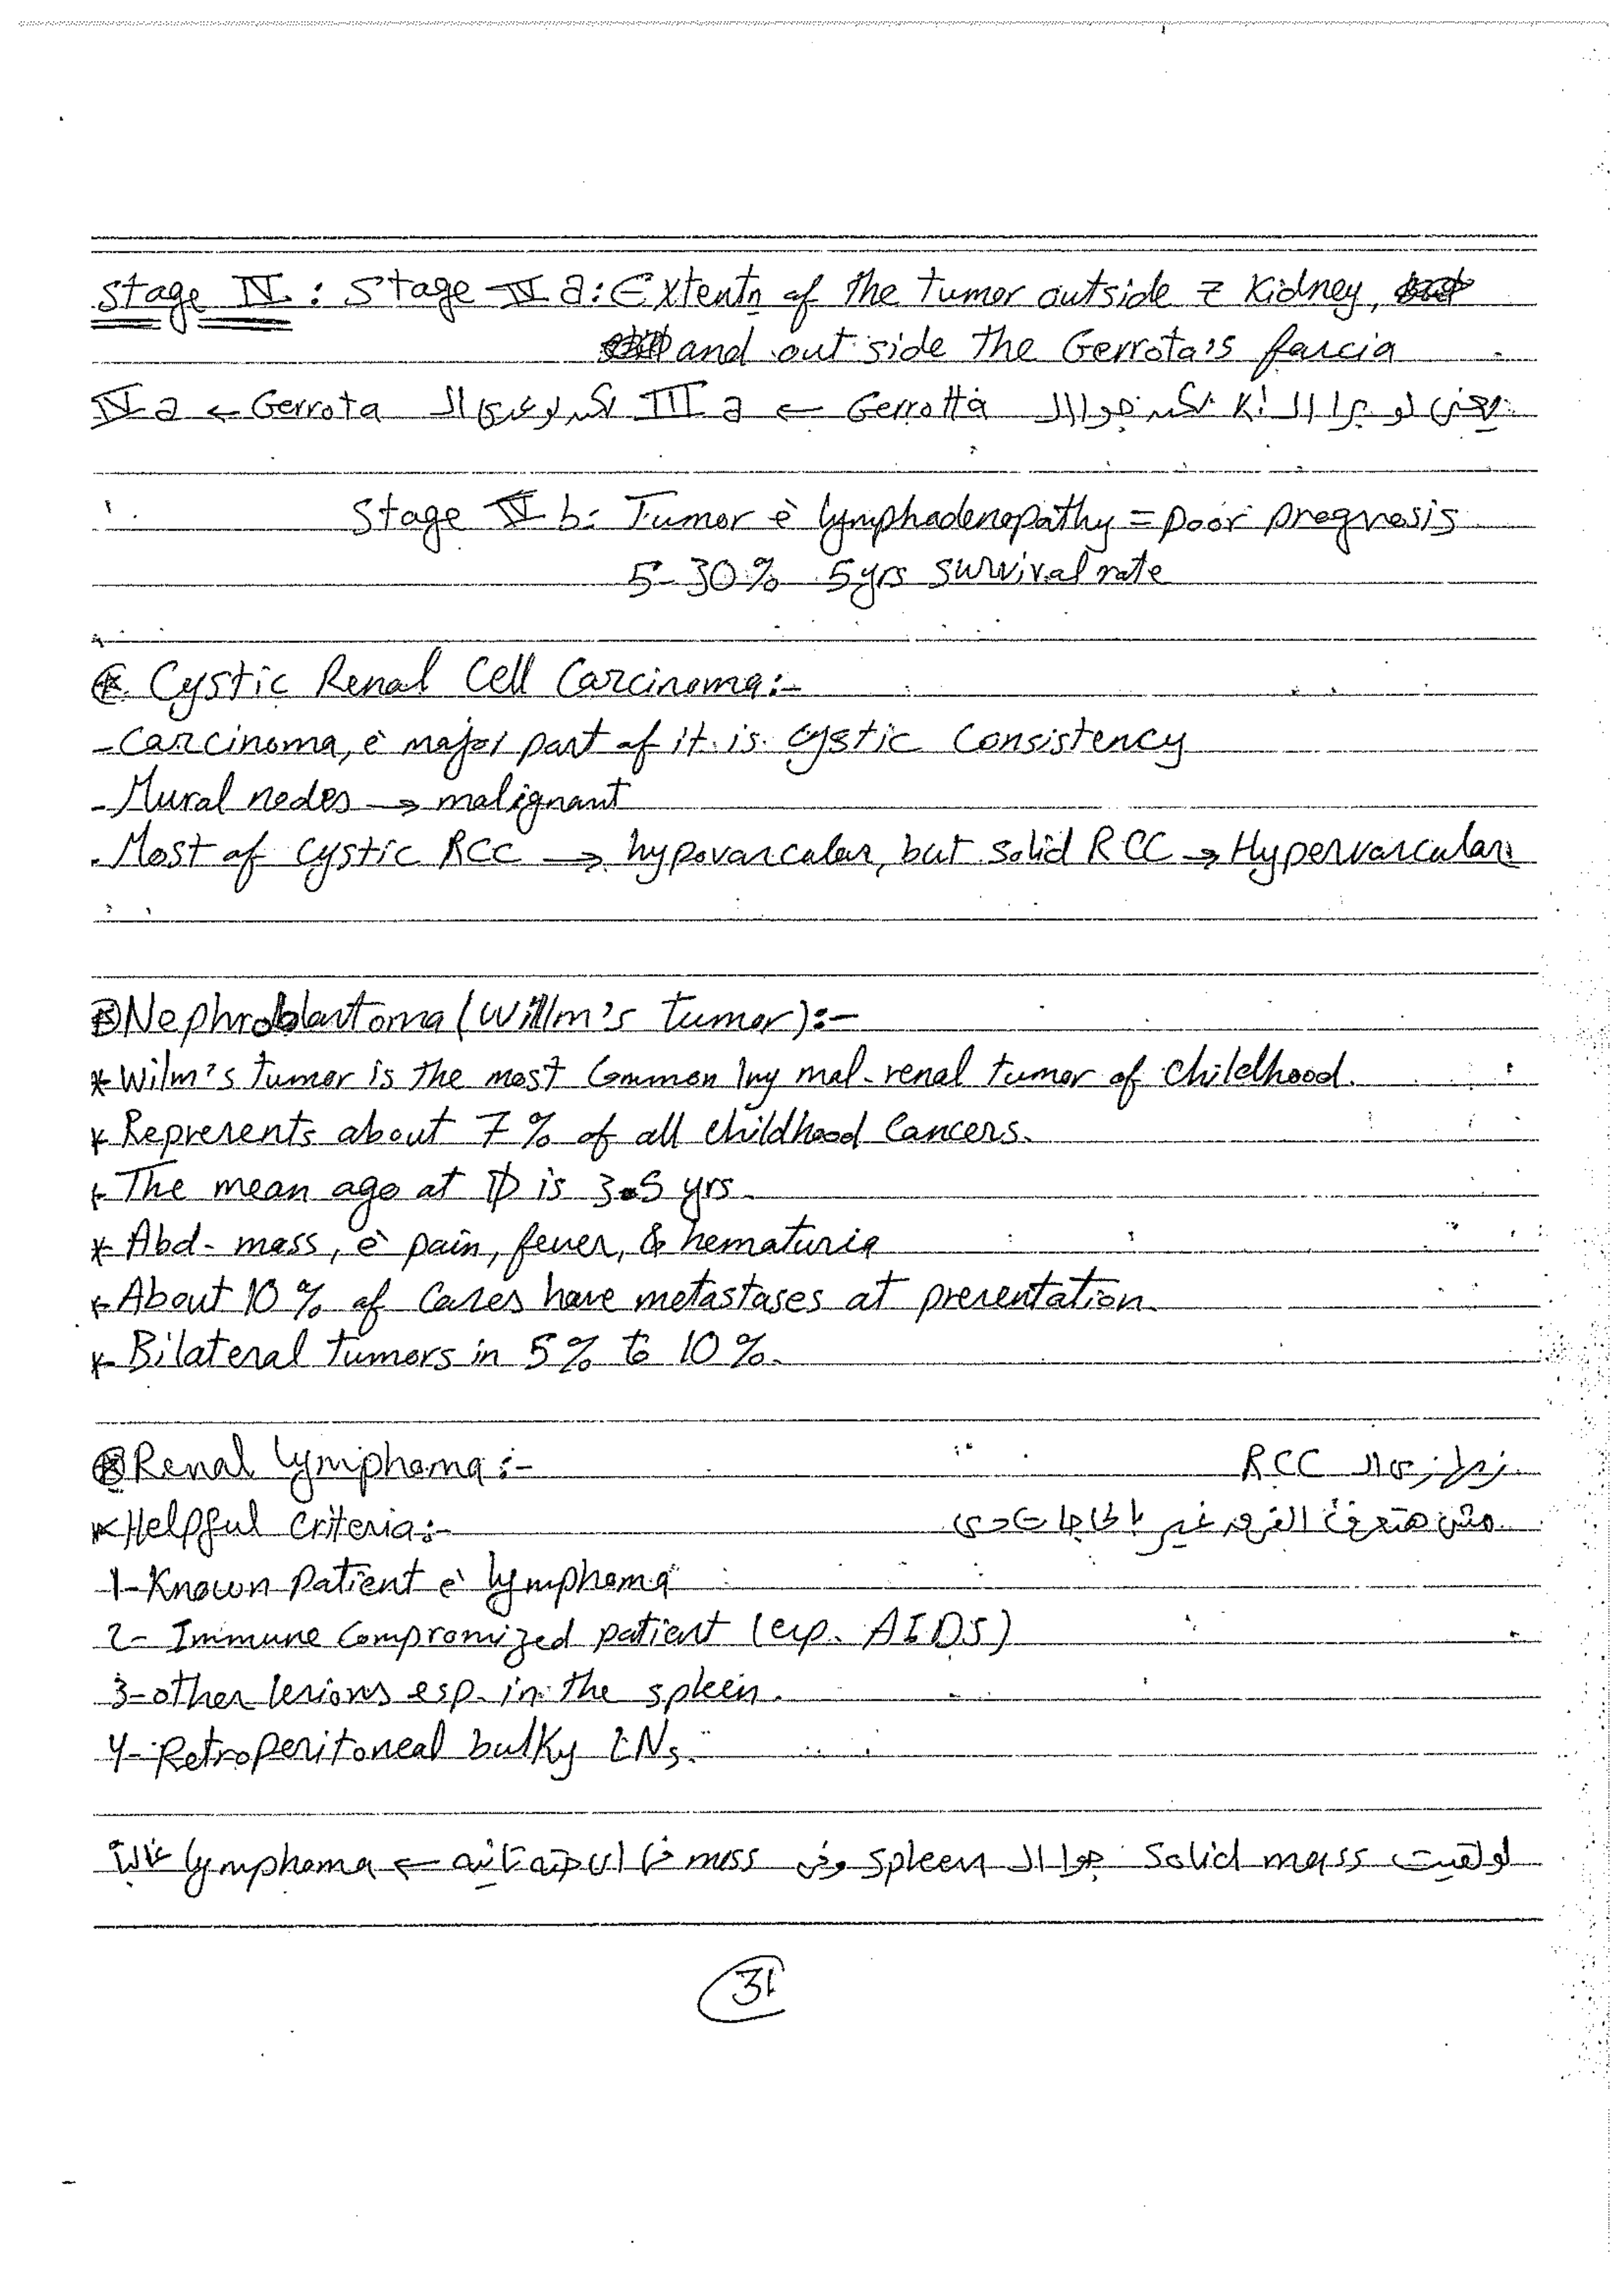 Stage IV : Stage IV a: Extentn of the tumor outside z Kidney,
and out side the Gerrota's fascia
يعني لو برا ال K لكن جوا ال Gerrotta ← III a لكن لو عدى ال Gerrota ← IV a
Stage IV b: Tumor è lymphadenopathy = poor prognosis
5-30% 5yrs survival rate
Cystic Renal Cell Carcinoma:-
- Carcinoma, è major part of it is cystic Consistency
- Mural nodes → malignant
- Most of Cystic RCC → hypovascular, but solid RCC → Hypervascular
Nephroblastoma (Willm's tumor):-
* Wilm's tumor is the most Common 1ry mal. renal tumor of childhood.
* Represents about 7 % of all childhood Cancers.
* The mean age at D is 3.5 yrs.
* Abd- mass, è pain, fever, & hematuria
* About 10 % of Cases have metastases at presentation.
* Bilateral tumors in 5 % to 10 %.
Renal lymphoma:- زيها زي ال RCC
* Helpful Criteria:- مش هتعرف الفرق غير بالحاجات دي
1- Known patient è lymphoma
2- Immune Compromized patient (esp. AIDS)
3- other lesions esp. in the spleen.
4- Retroperitoneal bulky LNs.
لو لقيت Solid mass جوا ال spleen وفي mass في اي حته تانيه ← lymphoma غالباً
31